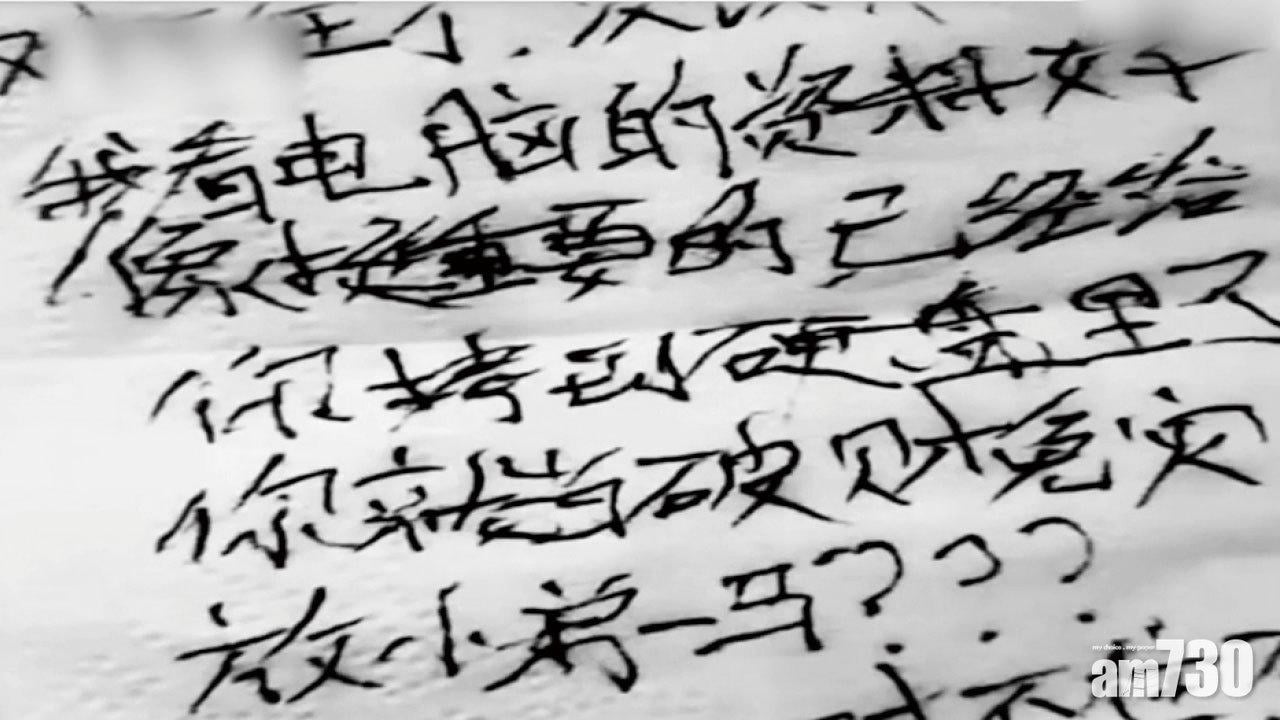 我看电脑的资料好
像挺重要的已经给
你拷到硬盘里了
你就当破财免灾
放小弟一马???
my choice . my paper
am730